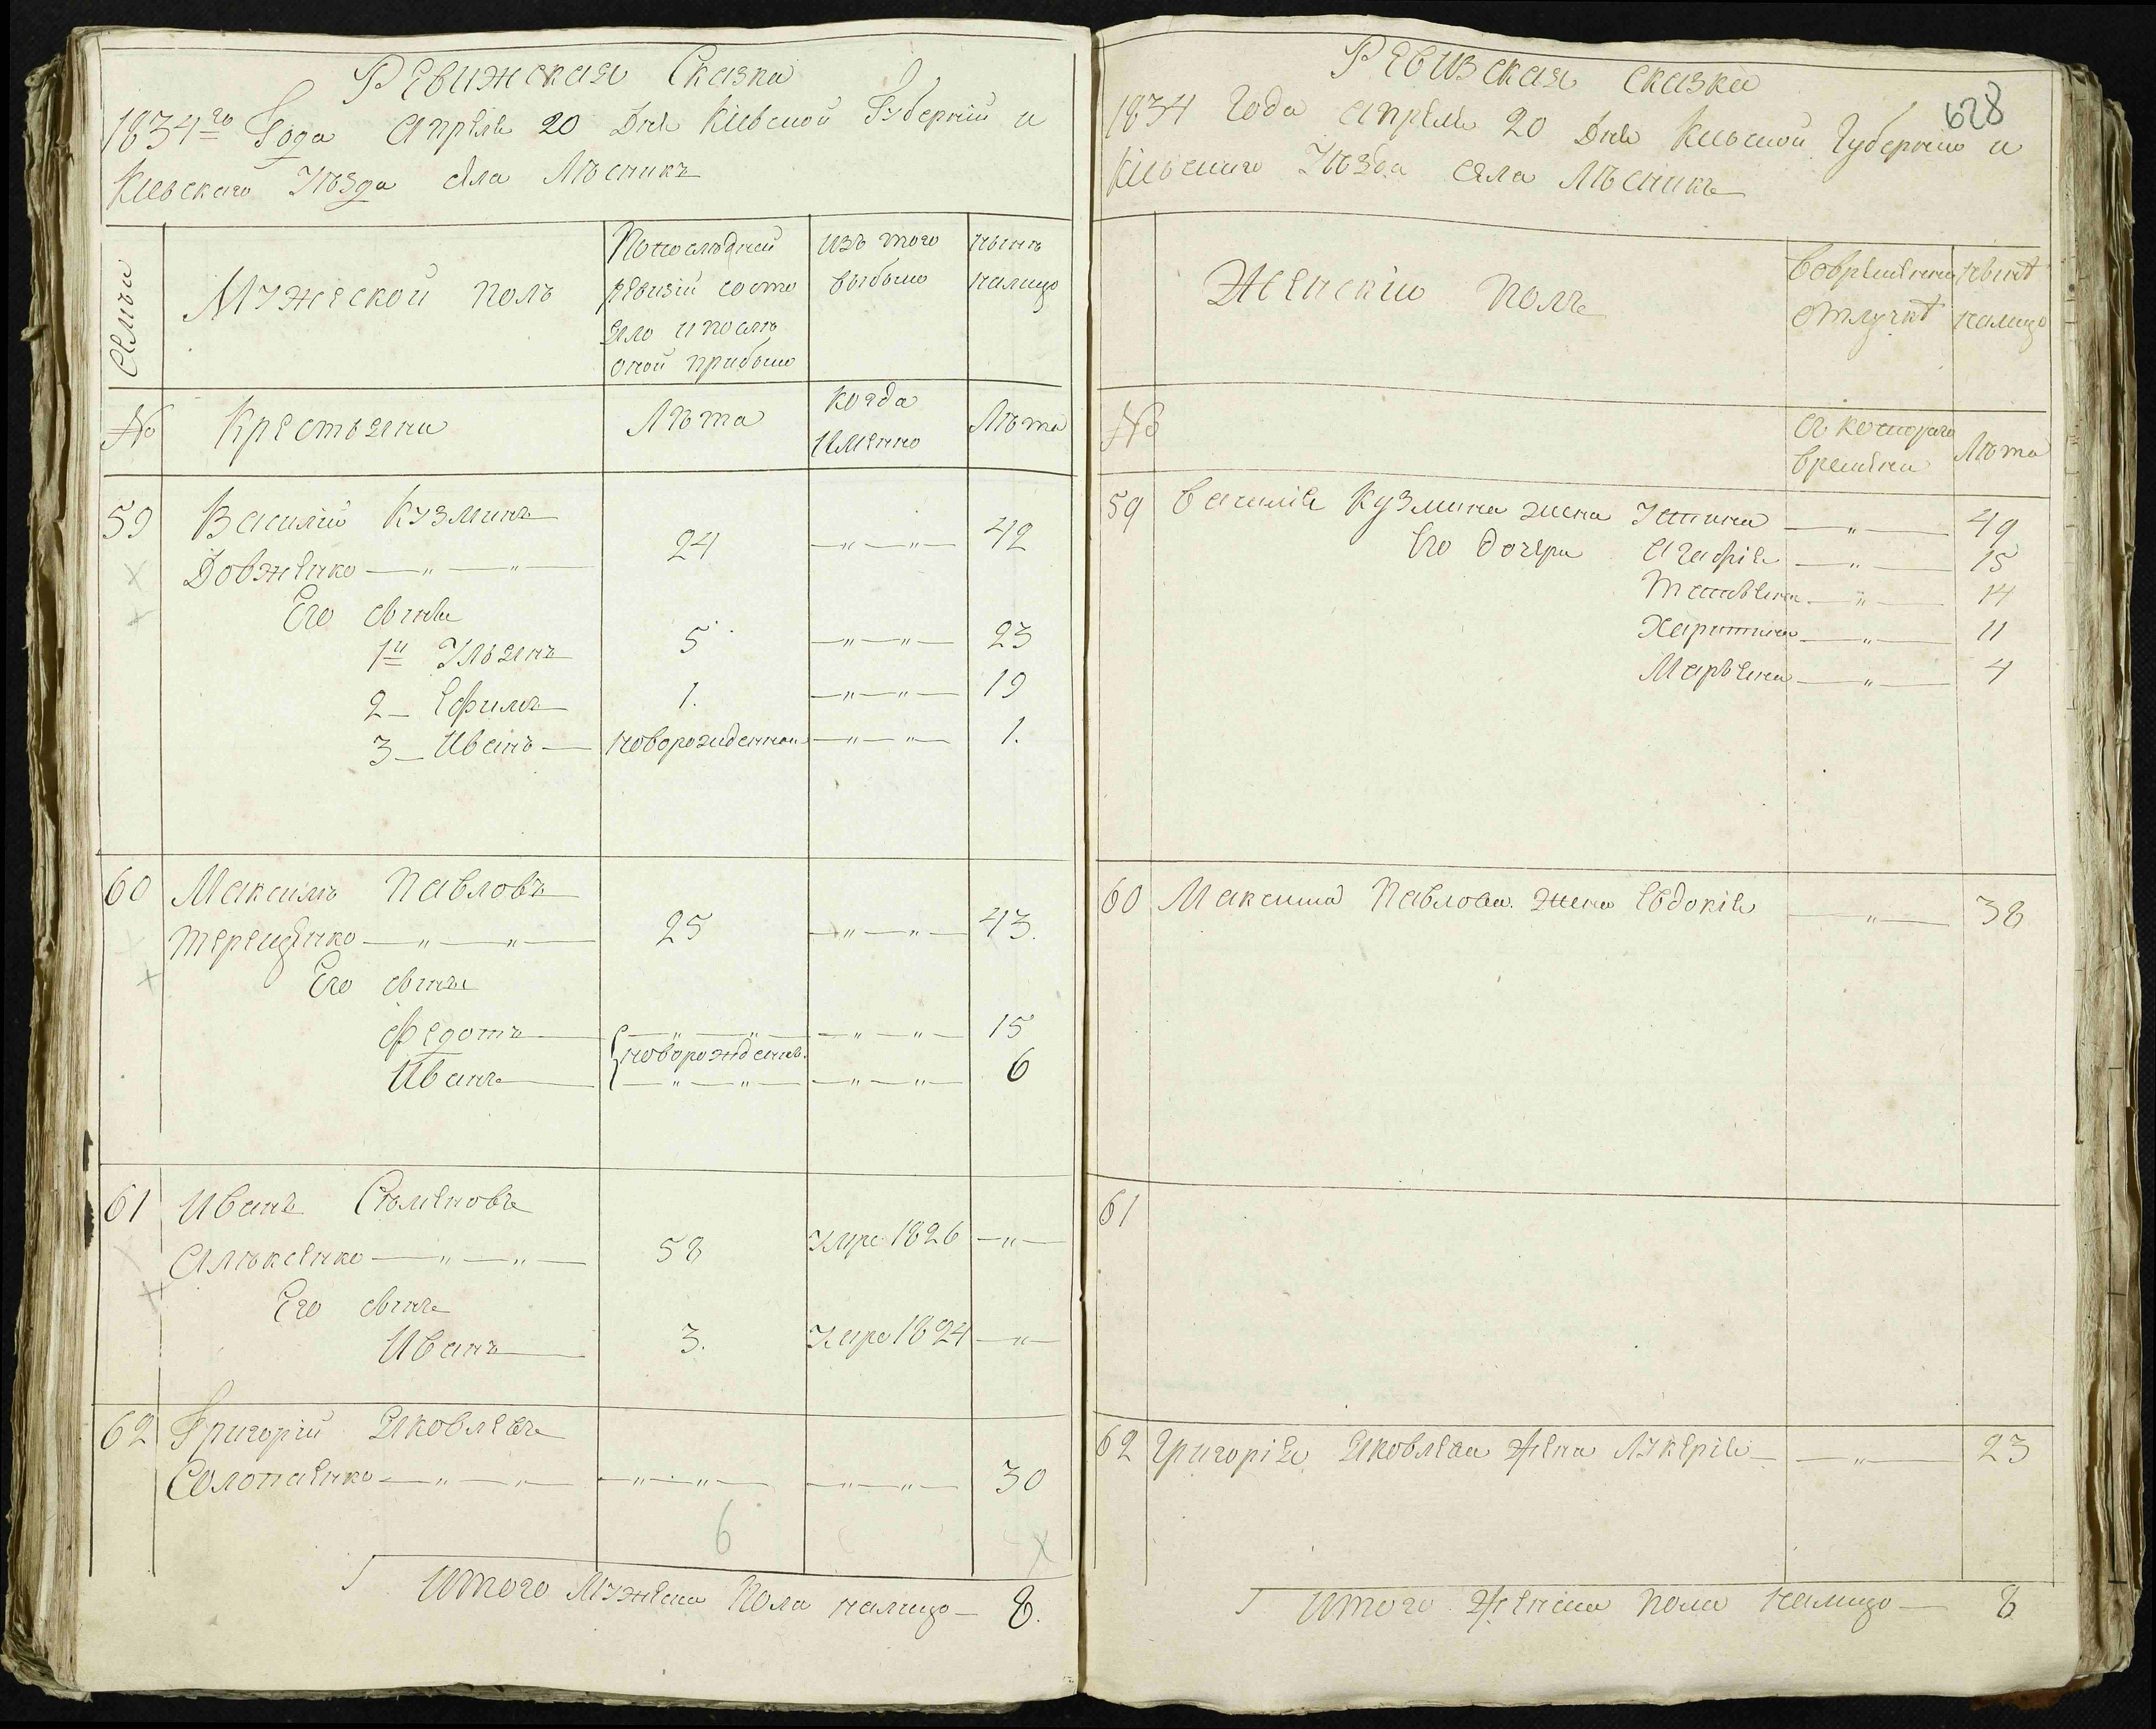 Ревижская Сказка
1834го Года Апреля 20 Дня Киевской Губерній и
Киевскаго Уезда села Лесникъ
Семьи
Мужеской полъ
Попоследней
ревизіи состо
яло ипосле
оной прибыло
изъ того
выбыло
ныне
налицо
№
Крестьяни
Лета
когда
именно
Лета
59 Василій Кузминъ
Довженко — " — " — 24 — " — " — 42
Его сыны
1й Ульянъ 5 — " — " — 23
2 — Ефимъ 1. — " — " — 19
3 — Иванъ — новорожденной — " — " — 1.
60 Максимъ Павловъ
Терещенко — " — " — 25 — " — " — 43.
Его сыны
Федотъ — " — " — — " — " — 15
новорожденые
Иванъ — " — " — — " — " — 6
61 Иванъ Семеновъ
Алексенко — " — " — 58 Умре 1826 — " —
Его сынъ
Иванъ 3. Умре 1824 — " —
62 Григорій Яковлевъ
Солопаенко — " — " — — " — " — — " — " — 30
6
Итого Мужеска Пола налицо — 8.
628
Ревизская сказка
1834 Года апреля 20 Дня Киевской Губерніи и
Киевскаго Уезда села Лесникъ
Женскій полъ
вовременной
отлучкѣ
нынѣ
налицо
№
съ котораго
времени
Лета
59 Василія Кузмина жена Устина — " — 49
Его дочери Агафія — " — 15
Татьяна — " — 14
Харитина — " — 11
Марьяна — " — 4
60 Максима Павлова жена Евдокія — " — 38
61
62 Григорія Яковлева жена Лукерія — — " — 23
Итого Женска пола налицо — 8